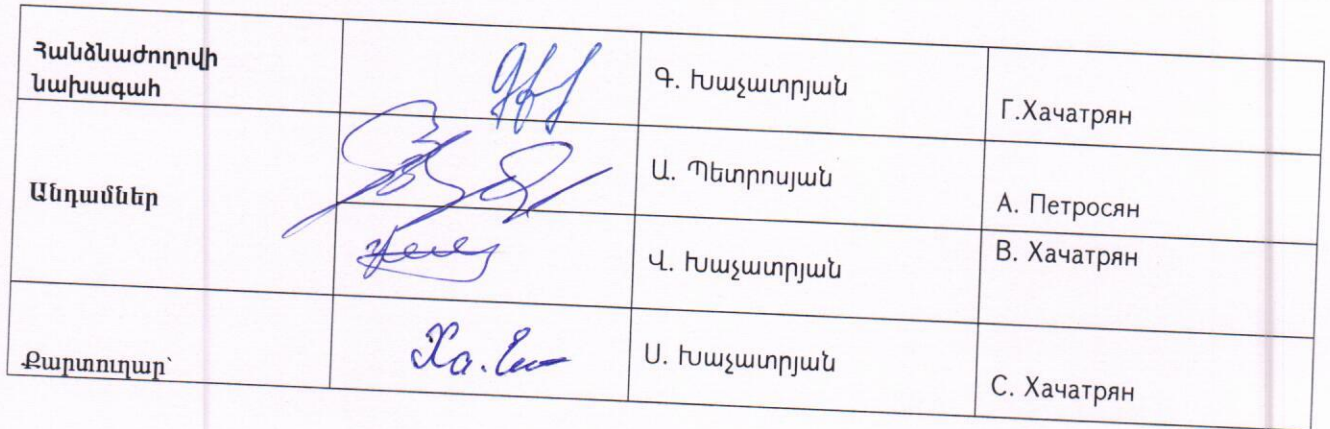 Հանձնաժողովի
նախագահ
Գ. Խաչատրյան
Г.Хачатрян
Անդամներ
Ա. Պետրոսյան
А. Петросян
Վ. Խաչատրյան
В. Хачатрян
Քարտուղար՝
Ս. Խաչատրյան
С. Хачатрян